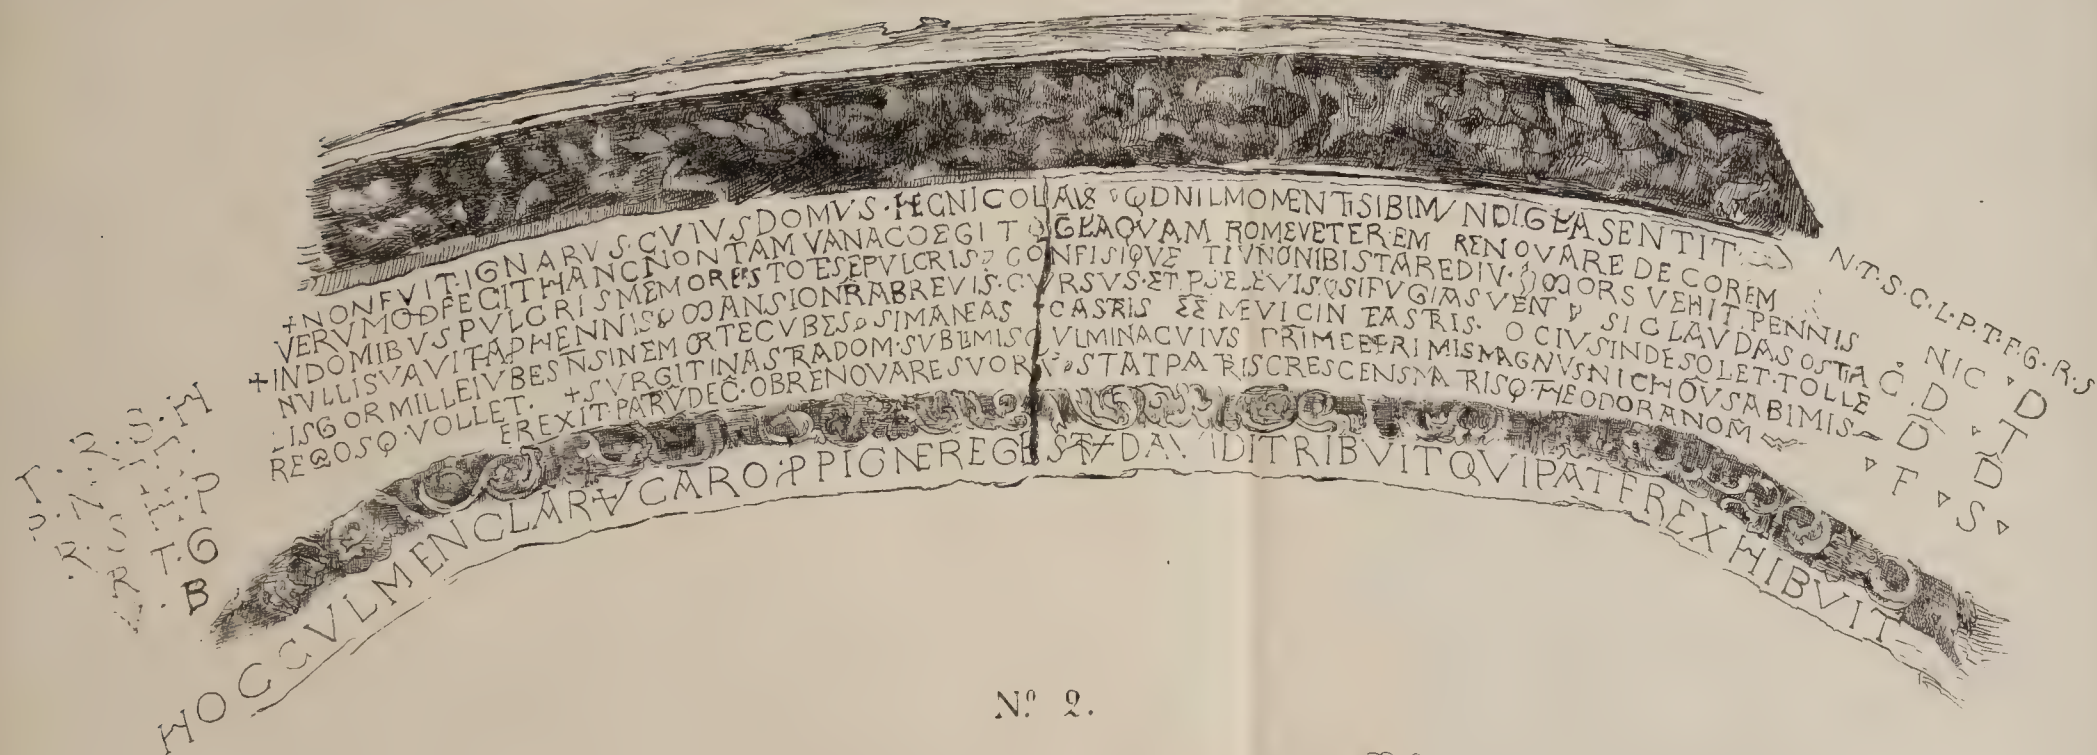 +NONFVIT·IGNARVS·CVIVSDOMVS·HECNICOLAVS QDNILMOMENTISIBIMVNDIGLASENTIT
VERVMQDFECITHANCNONTAMVANACOEGIT GLAQVAM ROMEVETEREM RENOVARE DECOREM
+INDOMIBVSPVLCRISMEMORESTOTESEPVLCRIS CONFISIQVE TIVNONIBISTAREDIV· MORS VEHIT PENNIS
NVLLISVAVITAPHENNIS MANSIONRABREVIS·CVRSVS·ET PSELEVIS SIFVGIASVENT SICLAVDASOSTIA
LISGORMILLEIVBESNSINEMORTECVBES SIMANEAS CASTRIS VICIN EASTRIS· OCIVSINDESOLET·TOLLE
REQOSQ·VOLLET. +SVRGITINASTRADOM·SVBLIMISCVLMINACVIVS PRIMISMAGNVSNICHOVSABIMIS
EREXIT·PARVDEC·OBRENOVARESVORV STATPATRISCRESCENSMATRISQTHEODORANOM
HOCCVLMENCLARVCARO·PPIGNEREGESTVDAVIDITRIBVITQVIPATEREXHIBVIT
N·T·S·C·L·P·T·F·G·R·S
NIC D
C·D T
D D
F S
T·R·S·H
R·S H·P
R T·G
V·B
Nº 2.